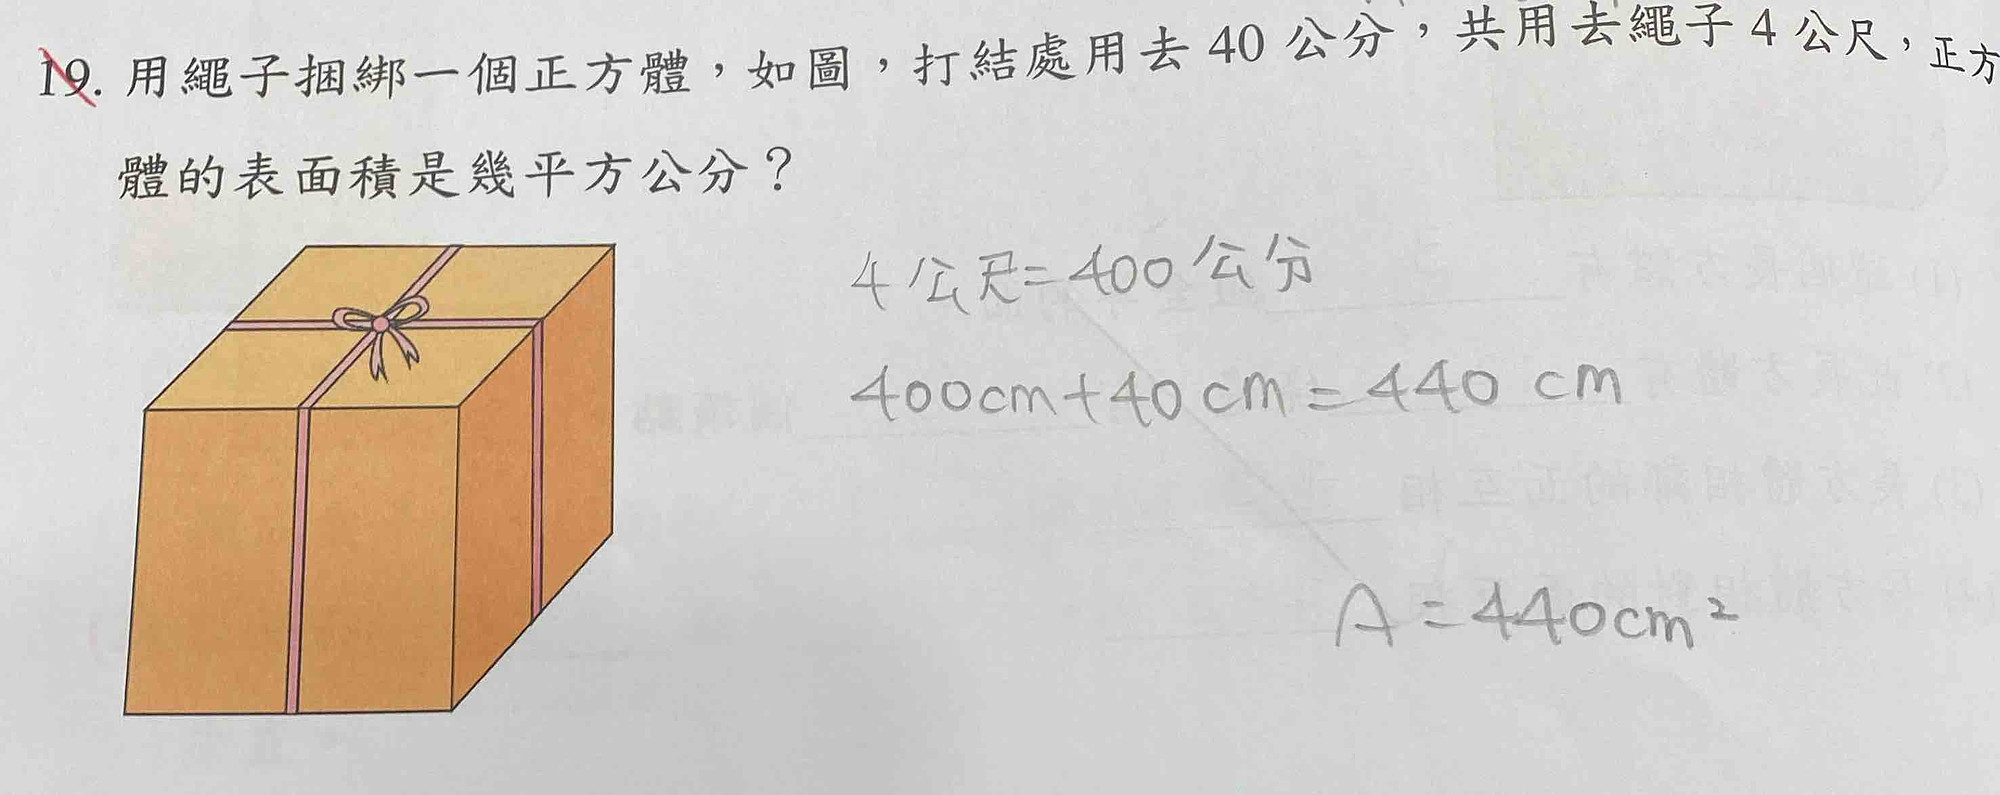 19. 用繩子捆綁一個正方體，如圖，打結處用去 40 公分，共用去繩子 4 公尺，正方
體的表面積是幾平方公分？
4公尺=400公分
400cm+40cm=440 cm
A=440cm²